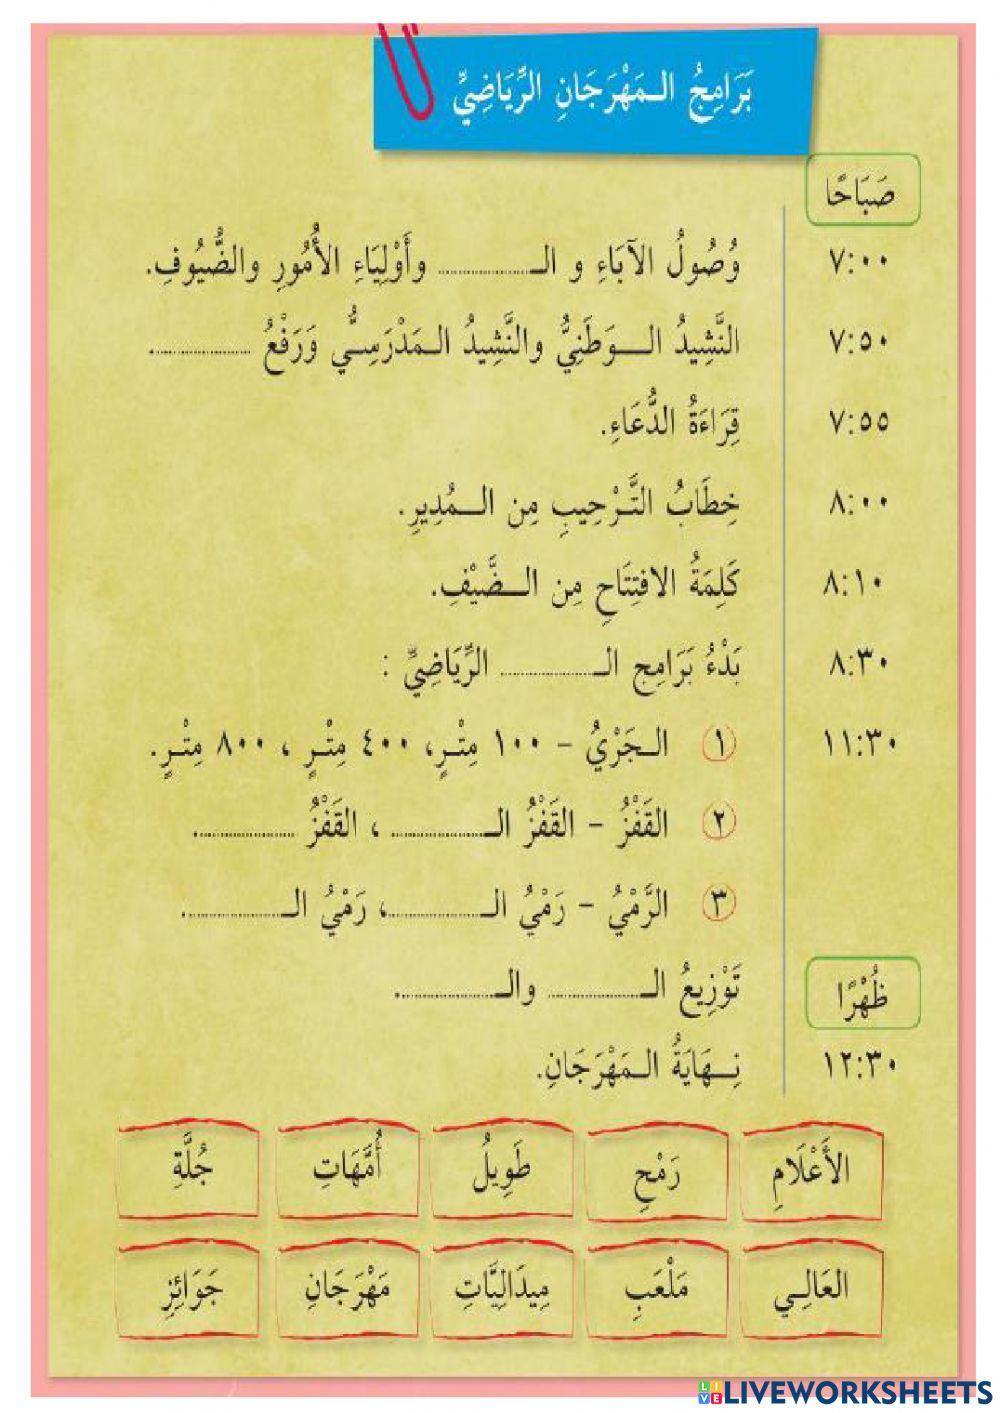 بَرَامِجُ الـمَهْرَجَانِ الرِّيَاضِيِّ
صَبَاحًا
٧:٠٠ وُصُولُ الآبَاءِ و الـ.................... وأَوْلِيَاءِ الأُمُورِ والضُّيُوفِ.
٧:٥٠ النَّشِيدُ الـوَطَنِيُّ والنَّشِيدُ الـمَدْرَسِيُّ وَرَفْعُ ....................
٧:٥٥ قِرَاءَةُ الدُّعَاءِ.
٨:٠٠ خِطَابُ التَّرْحِيبِ مِن الـمُدِيرِ.
٨:١٠ كَلِمَةُ الافتِتَاحِ مِن الـضَّيْفِ.
٨:٣٠ بَدْءُ بَرَامِج الـ.................... الرِّيَاضِيِّ :
١١:٣٠ ١ الـجَرْيُ - ١٠٠ مِتْرٍ، ٤٠٠ مِتْرٍ ، ٨٠٠ مِتْرٍ.
٢ القَفْزُ - القَفْزُ الـ.................... ، القَفْزُ ....................
٣ الرَّمْيُ - رَمْيُ الـ....................، رَمْيُ الـ....................
ظُهْرًا تَوْزِيعُ الـ.................... والـ....................
١٢:٣٠ نِـهَايَةُ الـمَهْرَجَانِ.
الأَعْلَامِ رَمْحِ طَوِيلُ أُمَّهَاتِ جُلَّةِ
العَالِـي مَلْعَبِ مِيدَالِيَّاتِ مَهْرَجَانِ جَوَائِزِ
LIVEWORKSHEETS